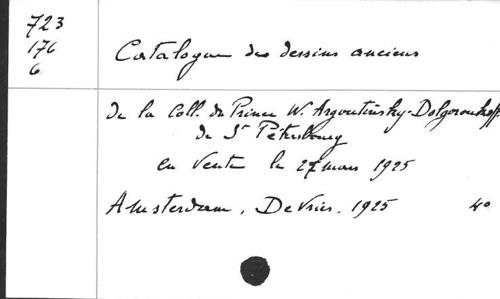 723
176
6
Catalogue des dessins anciens
de la Coll. du Prince W. Argoutinsky-Dolgoroukoff
de St Pétersbourg
en vente le 27 mars 1925
Amsterdam, De Vries, 1925 4°